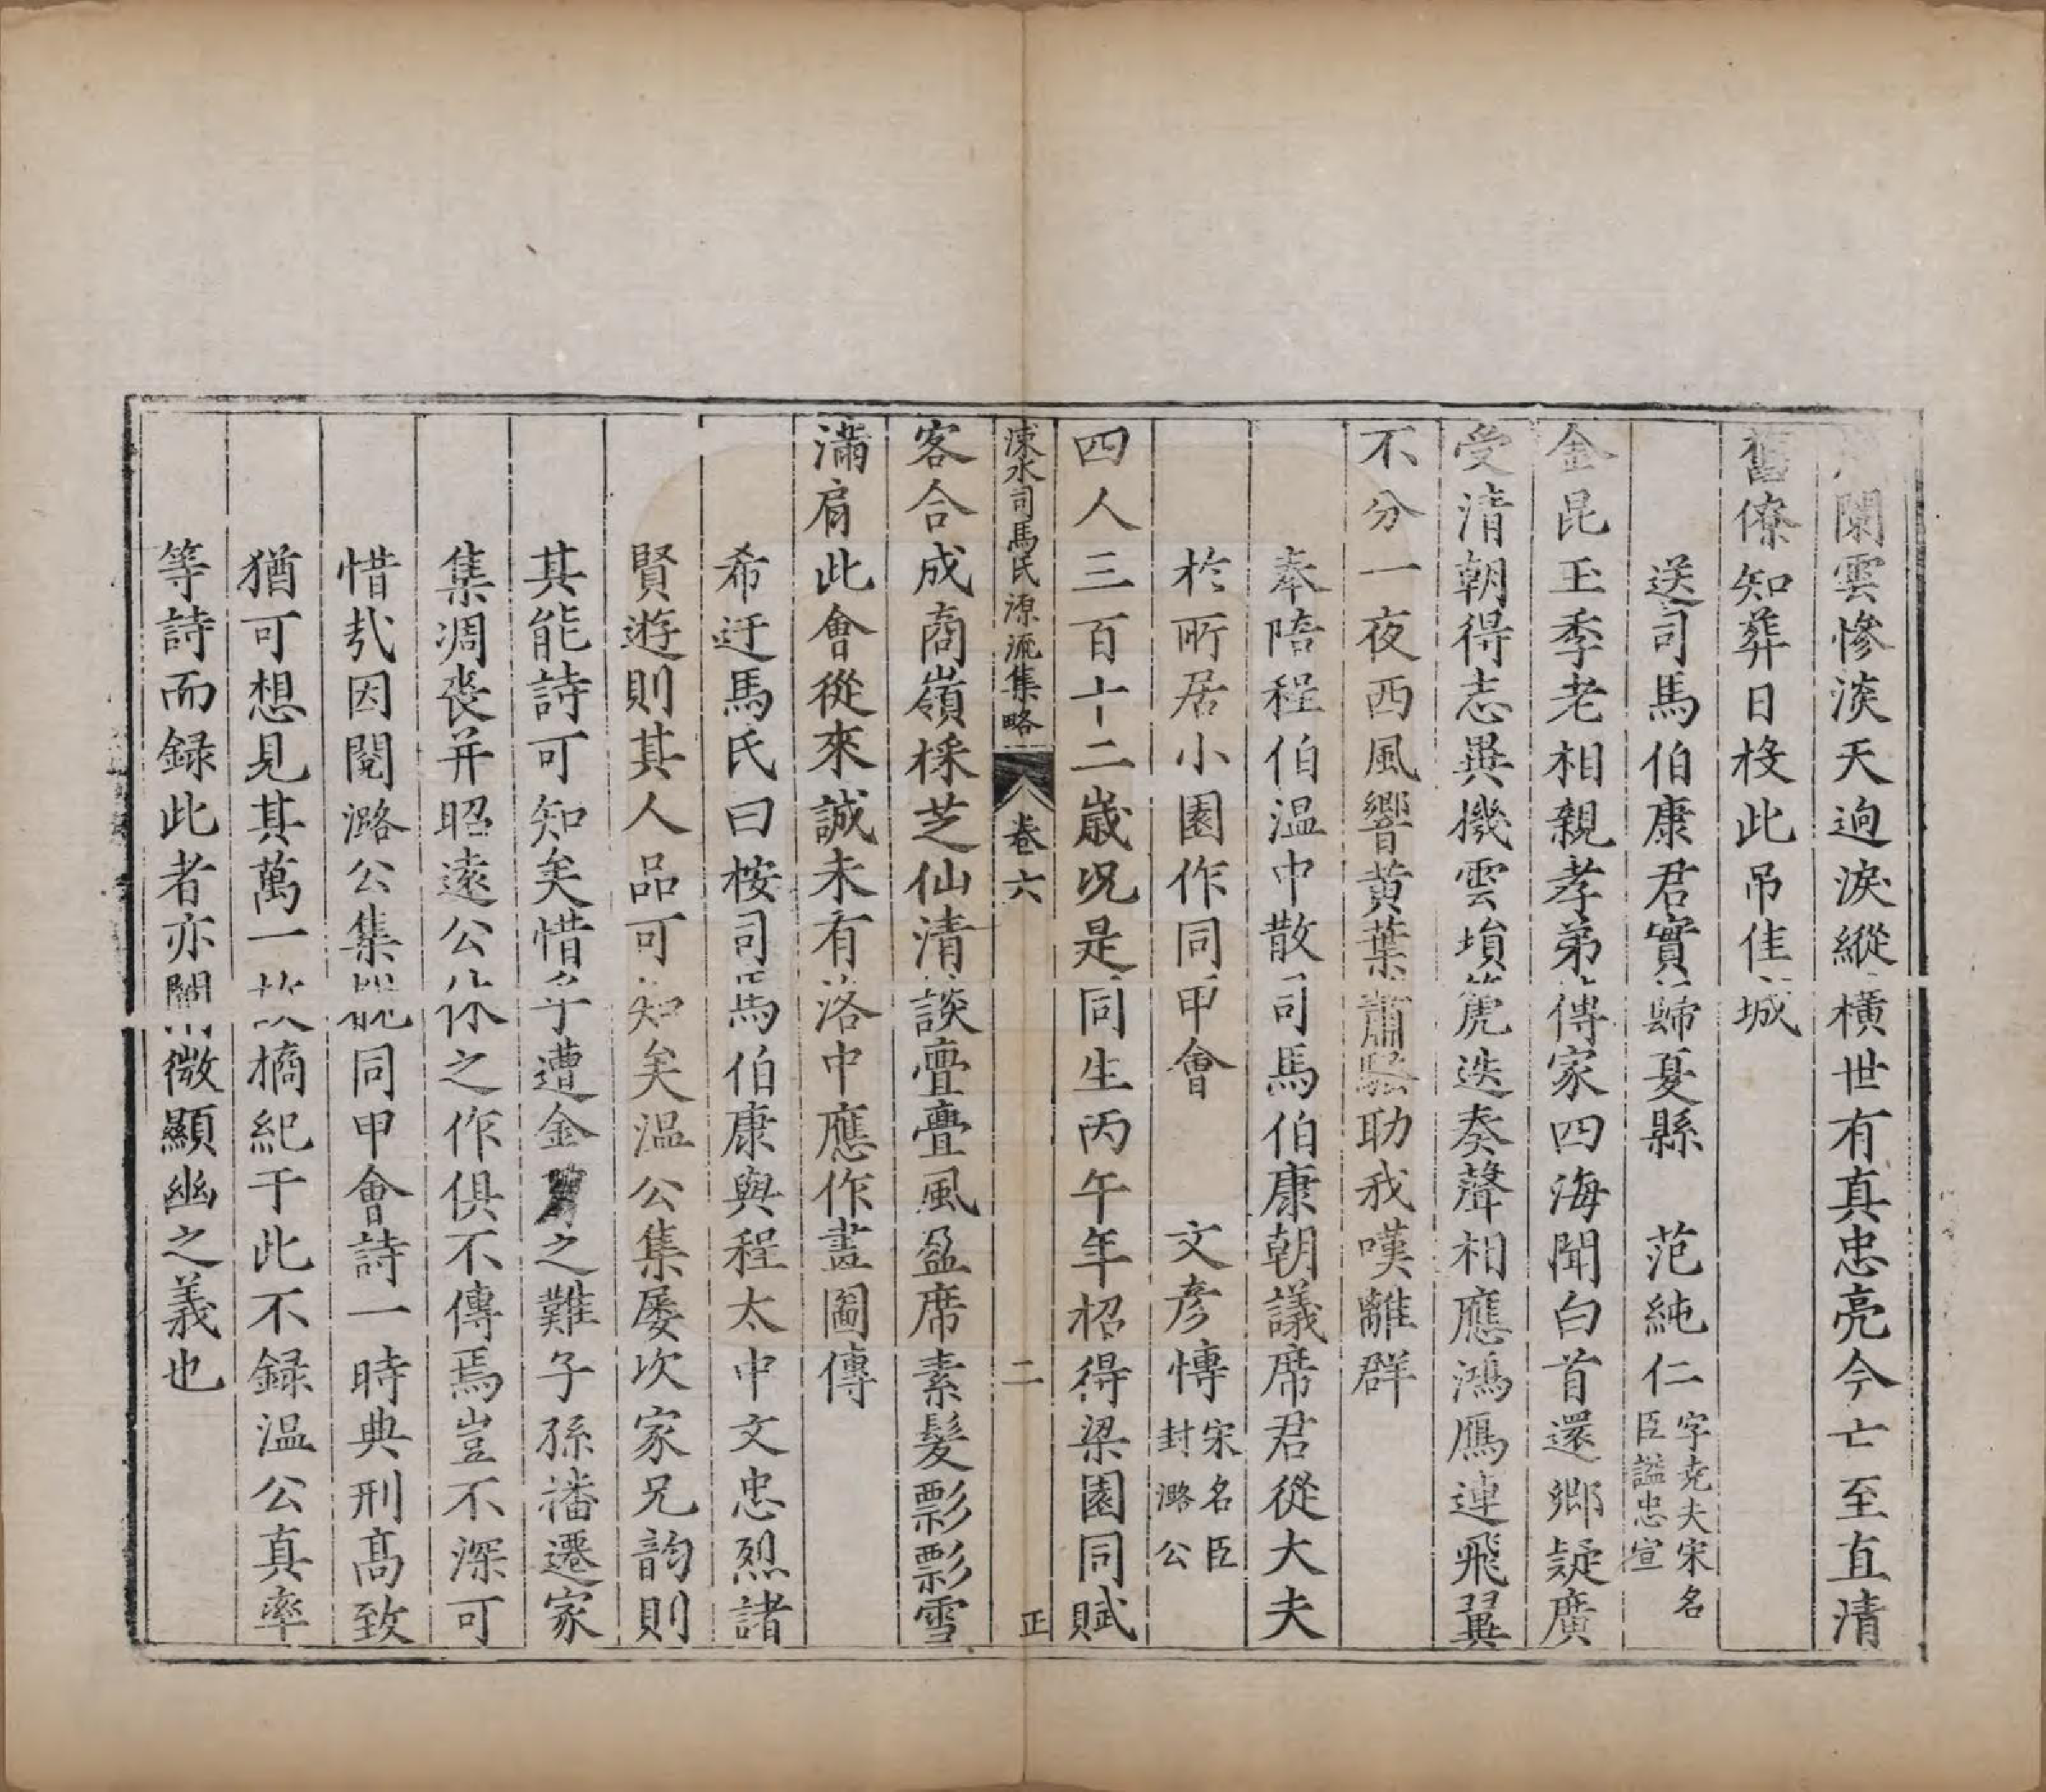 闌雲慘淡天逈淚縱橫世有真忠亮今亡至直清
舊僚知葬日挍此吊佳城
送司馬伯康君實歸夏縣　范純仁字尭夫宋名臣謚忠宣
金昆玉季老相親孝弟傳家四海聞白首還郷疑廣
受清朝得志異機雲塤篪迭奏聲相應鴻鴈連飛翼
不分一夜西風響黄葉蕭騷助我嘆離群
奉陪程伯温中散司馬伯康朝議席君從大夫
於所居小園作同甲會　文彥博宋名臣封潞公
四人三百十二歲况是同生丙午年招得梁園同賦
涑水司馬氏源流集略　卷六　二　正
客合成商嶺採芝仙清談亹亹風盈席素髮飄飄雪
滿肩此會從來誠未有洛中應作畫圖傳
希迂馬氏曰桉司馬伯康與程太中文忠烈諸
賢遊則其人品可知矣温公集屡次家兄韵則
其能詩可知矣惜乎遭金之難子孫播遷家
集凋喪并昭遠公休之作俱不傳焉豈不深可
惜㢤因閱潞公集覩同甲會詩一時典刑髙致
猶可想見其萬一故摘紀于此不録温公真率
等詩而録此者亦闡微顯幽之義也